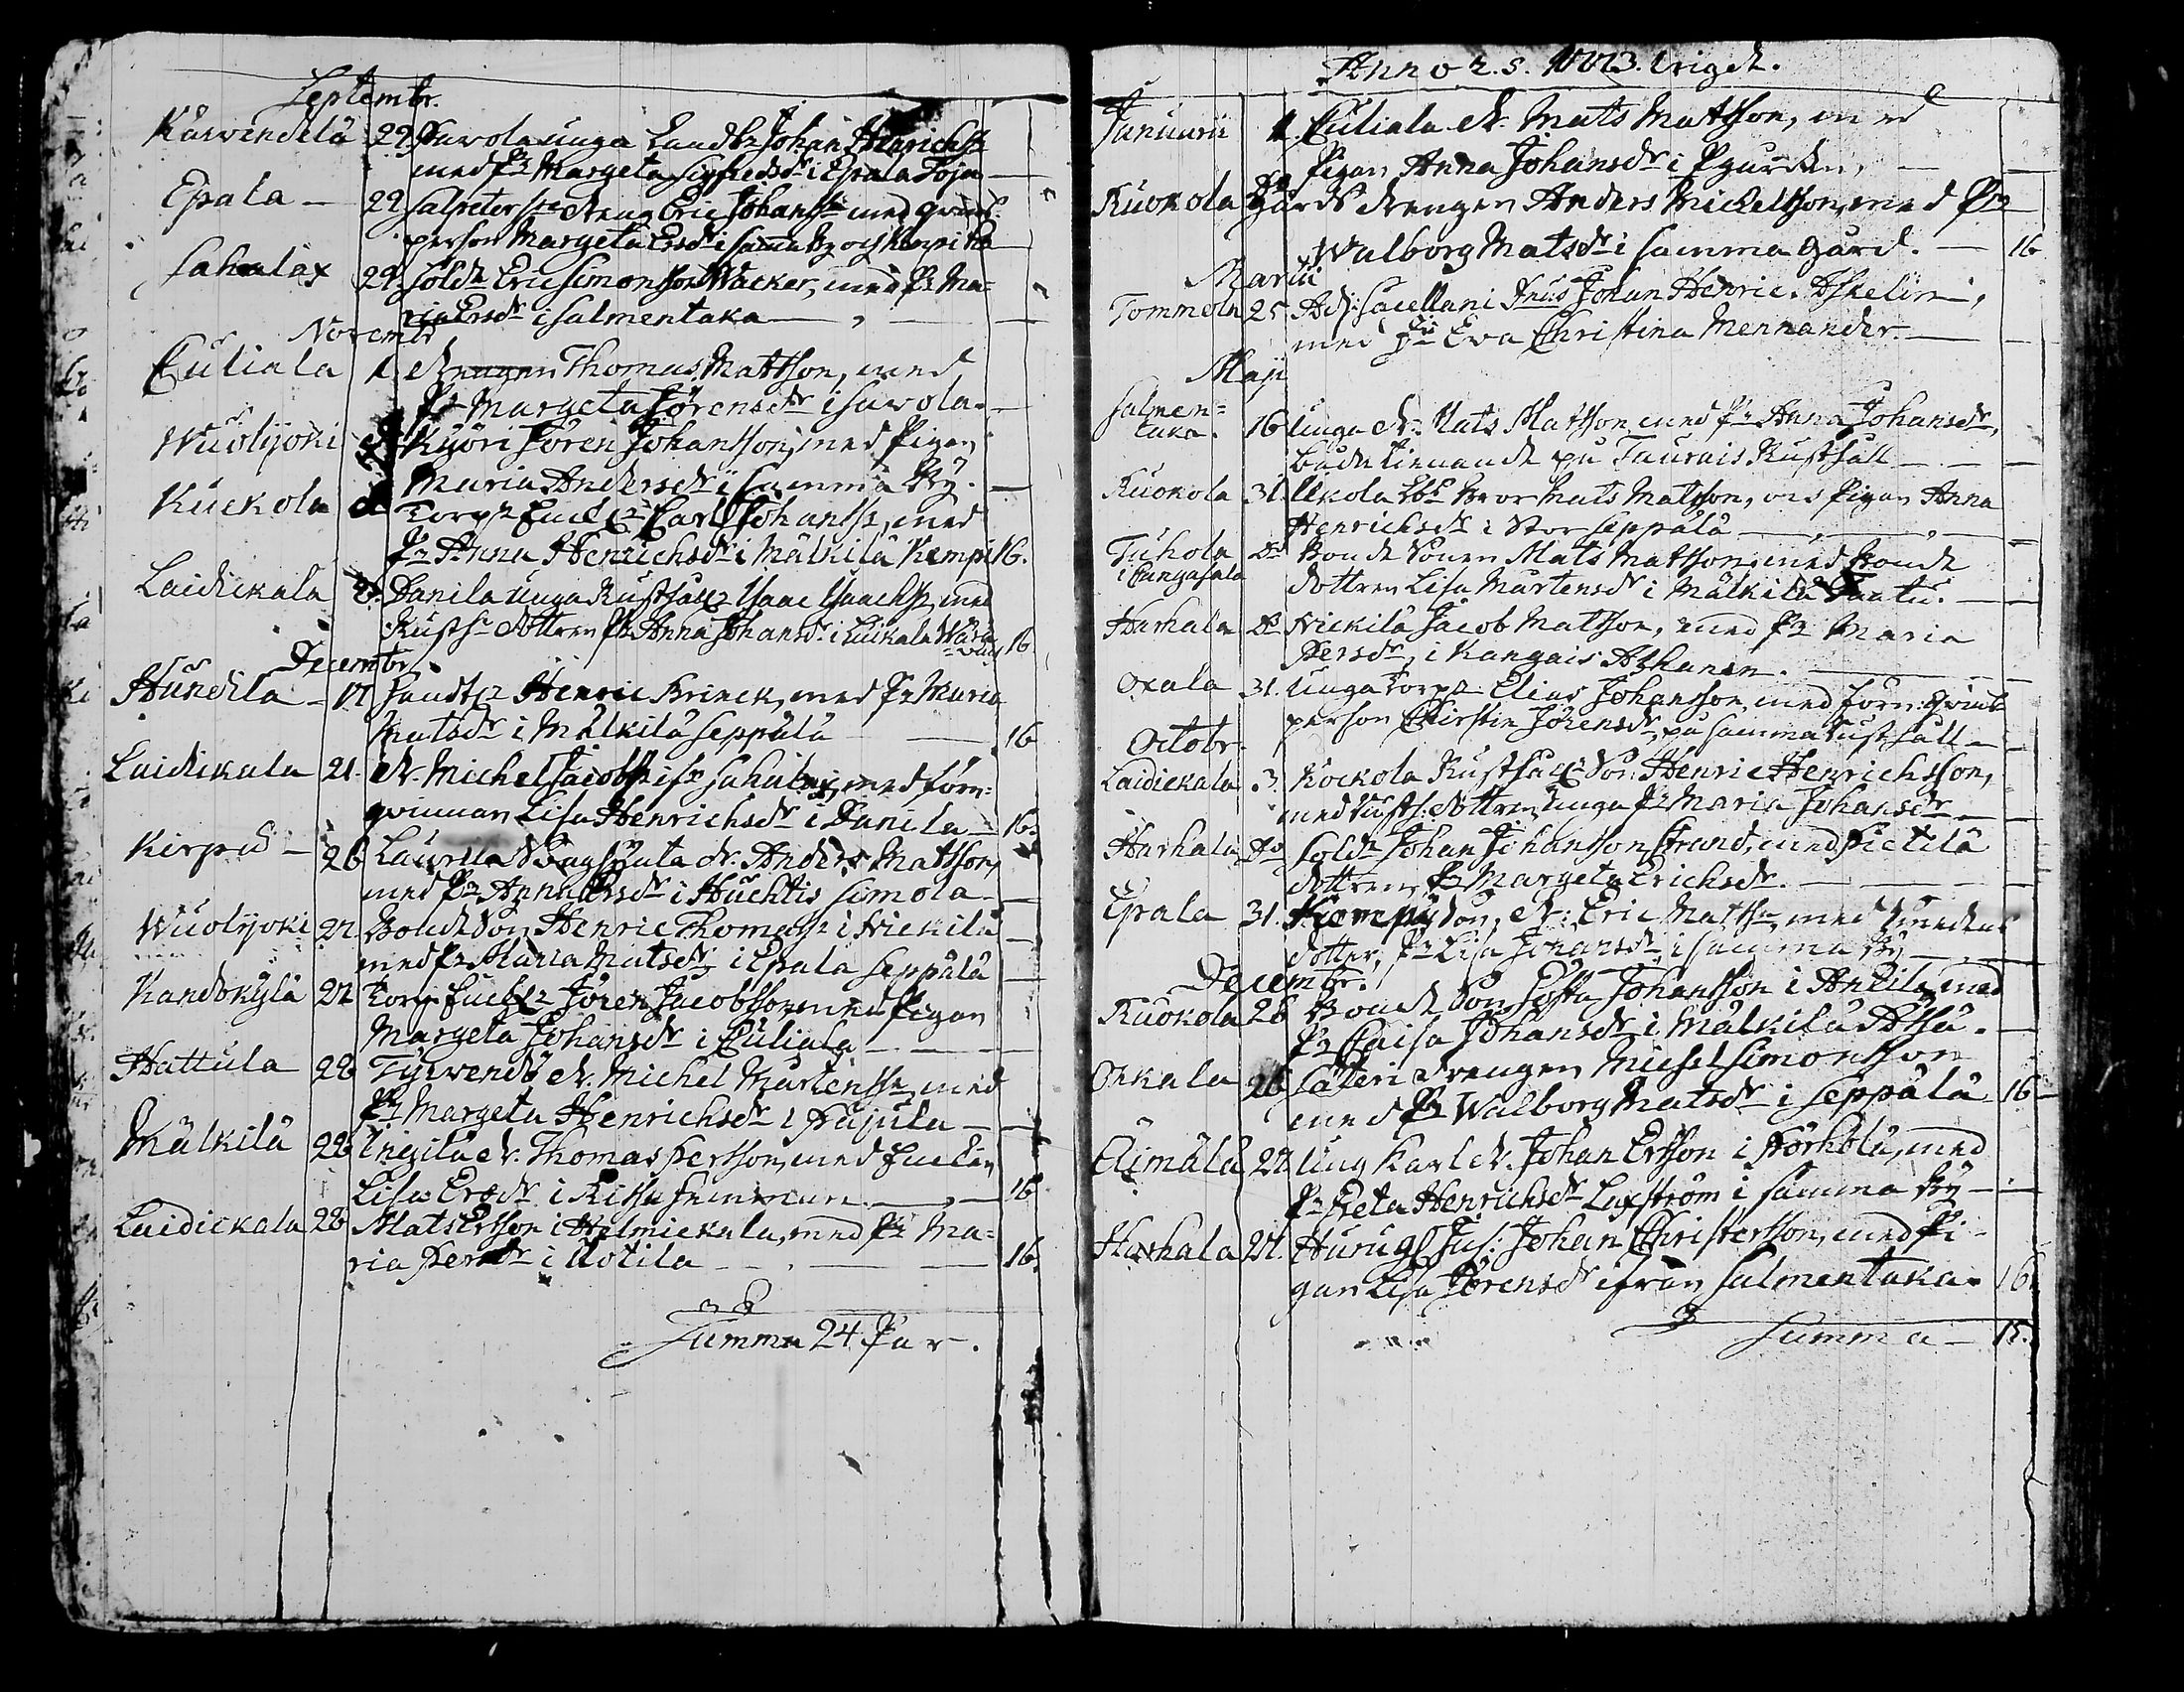 Septembr.
Kärvendelä 29. Pavola unga Landb: Johan Hinrichss:
med P: Margeta Sigfredsdr i Epala Toja
Epala - 29. Salpeter dreng Eric Johanss: med qvins-
person Margeta Ersdr i samma By och Kempi
Sahalax 29. Sold: Eric Simonsson Wacker, med P: Ma=
ria Ersdr i Salmentaka
Novembr
Euliala 1. Drengen Thomas Mattsson, med
P: Margeta Sörensdr i Savola.
Wuolijoki Kyöri Sören Johansson, med Pigan
Maria Andersdr i samma By.
Kuckola Torp: Enckl: Carl Johanss:, med
P: Anna Henrichsdr i Mälkilä Kempi 16.
Laidickala Danila unga Rusthåll: Isaac Isaacss:, med
Rusth: dottren P: Anna Johansdr i Luikala 16
Decembr.
Hundila - 17 Landtb: Henric Brinck, med P: Maria
Matsdr i Mälkilä Seppälä 16
Laidikala 21. Dr. Michel Jacobss: ifr. Sahalax, med förn=
qvinnan Lisa Henrichsdr i Danila - 16.
Kirpu - 26 Laurila Dr. Anders Mattsson,
med P: Anna Ersdr i Huchtis Simola
Wuolijoki 27 Bonde Son Henric Thomass: i Nickilä
med P: Maria Matsdr i Epala Seppälä
Kandokylä 27 Torp: Enckl: Sören Jacobsson med Pigan
Margeta Johansdr i Euliala
Hattula 28 Tyrvendö Dr. Michel Mårtenss: med
P: Margeta Henrichsdr i Pajula
Mälkilä 28 Ingilä Dr. Thomas Persson, med Enckan
Lisa Ersdr i 16
Laidickala 28 Mats Ersson i Helmickala, med P: Ma=
ria Persdr i Uotila 16.
Summa 24 Par.
Anno 2. s. 1773. vigde.
Januarii 1. Euliala Dr. Mats Mattsson, med
Pigan Anna Johansdr i Pgården,
Kuokola Do Gårds drengen Anders Michelsson, med P:
Walborg Matsdr i samma gård. 16
Martii
Tommola 25 Adj: Sacellani Johan Henric Askelin,
med Eva Christina Mennander.
Maji
Salmen=
taka. 16 unga Dr. Mats Mattsson med P: Anna Johansdr,
både tienande på Taurais Rusthåll
Kuokola 31. Ukola Mats Matsson, och Pigan Anna
Henrichsdr i Stor Seppälä
Tuhola
i Cangasala Do Bonde Sonen Mats Mattsson, med Bonde
dottren Lisa Mårtensdr i Mälkilä Tantu.
Harhala Do Nickilä Jacob Mattson, med P: Maria
Persdr, i Kangais Ahanen.
Oxala 31. unga Torp: Elias Johansson, med förn: qvins-
person Chirstin Sörensdr, på samma Rusthåll
Octobr.
Laidickala 3. Kockola Rusthåll: Son Henric Henrichsson,
med Rusth: dottren unga P: Maria Johansdr
Harhala Do Sold: Johan Johansson Strand, med Pietilä
dottren P: Margeta Erichsdr.
Epala 31. Kempi Son, Dr. Eric Matss:, med Smedens
dotter, P: Lisa Johansdr, i samma By
Decembr.
Kuokola 26 Bonde Son Gösta Johansson i Antila, med
P: Caisa Johansdr i Mälkilä Påsa.
Onkala 26 Säteri drengen Michel Simonsson
med P: Walborg Matsdr i Seppälä 16
Äimälä 27 ung Karl Dr. Johan Ersson i Hörhölä, med
P: Greta Henrichsdr Laxström i samma By
Harhala 27. Johan Christersson, med Pi=
gan Lisa Sörensdr ifrån Salmentaka. 16
Summa - 15.